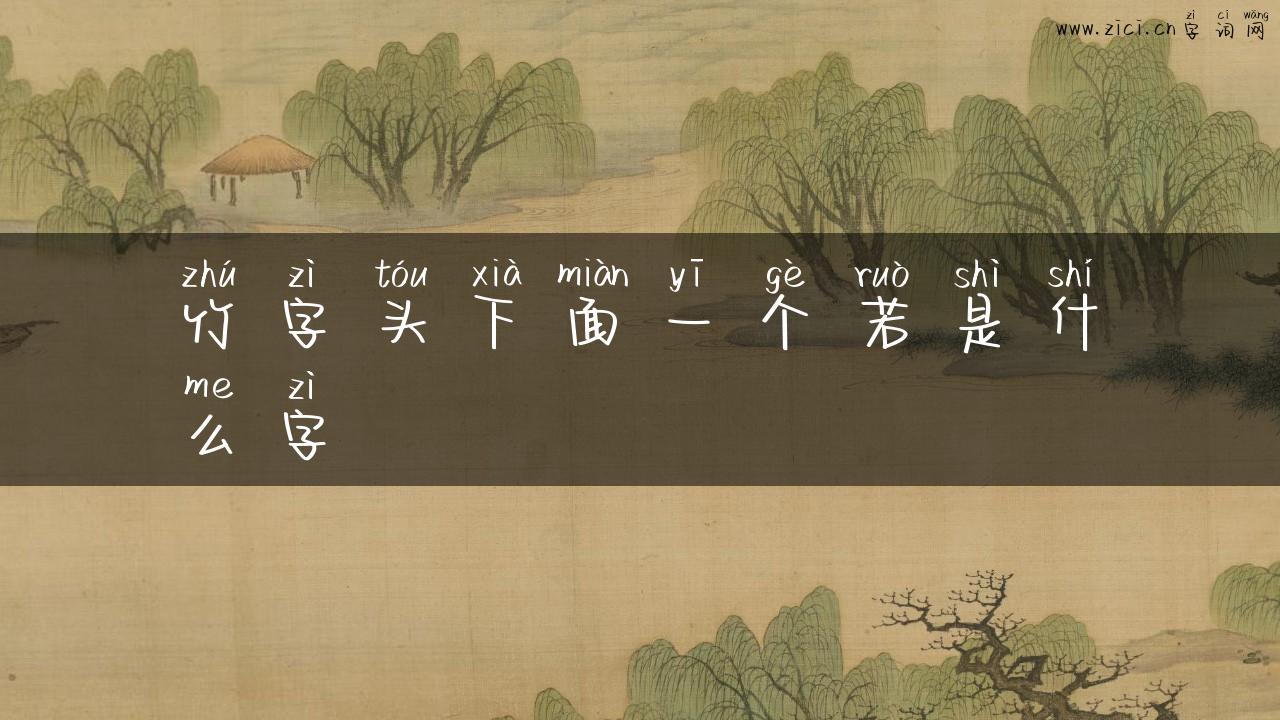 zì cí wǎng
www.zici.cn 字词网
zhú zì tóu xià miàn yī gè ruò shì shí
竹字头下面一个若是什
me zì
么字